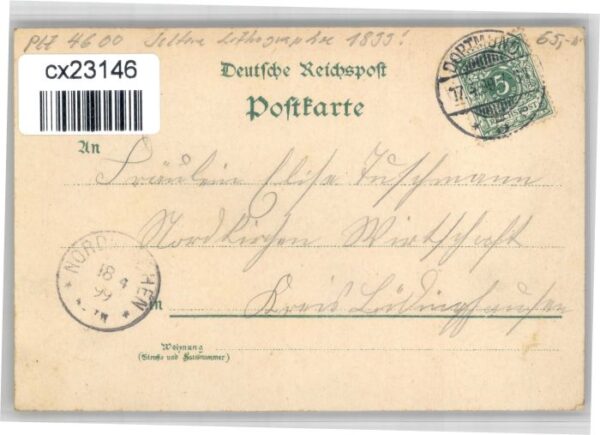 PLZ 4600 Seltene Lithographie 1899! 65,-
cx23146
Deutsche Reichspost
Postkarte
DORTMUND
5
REICHSPOST
An
Fräulein Elise Tuschmann
Nordkirchen Wirtschaft
in Kreis Lüdinghausen
NORDKIRCHEN
18 4
99
Wohnung
(Straße und Hausnummer)